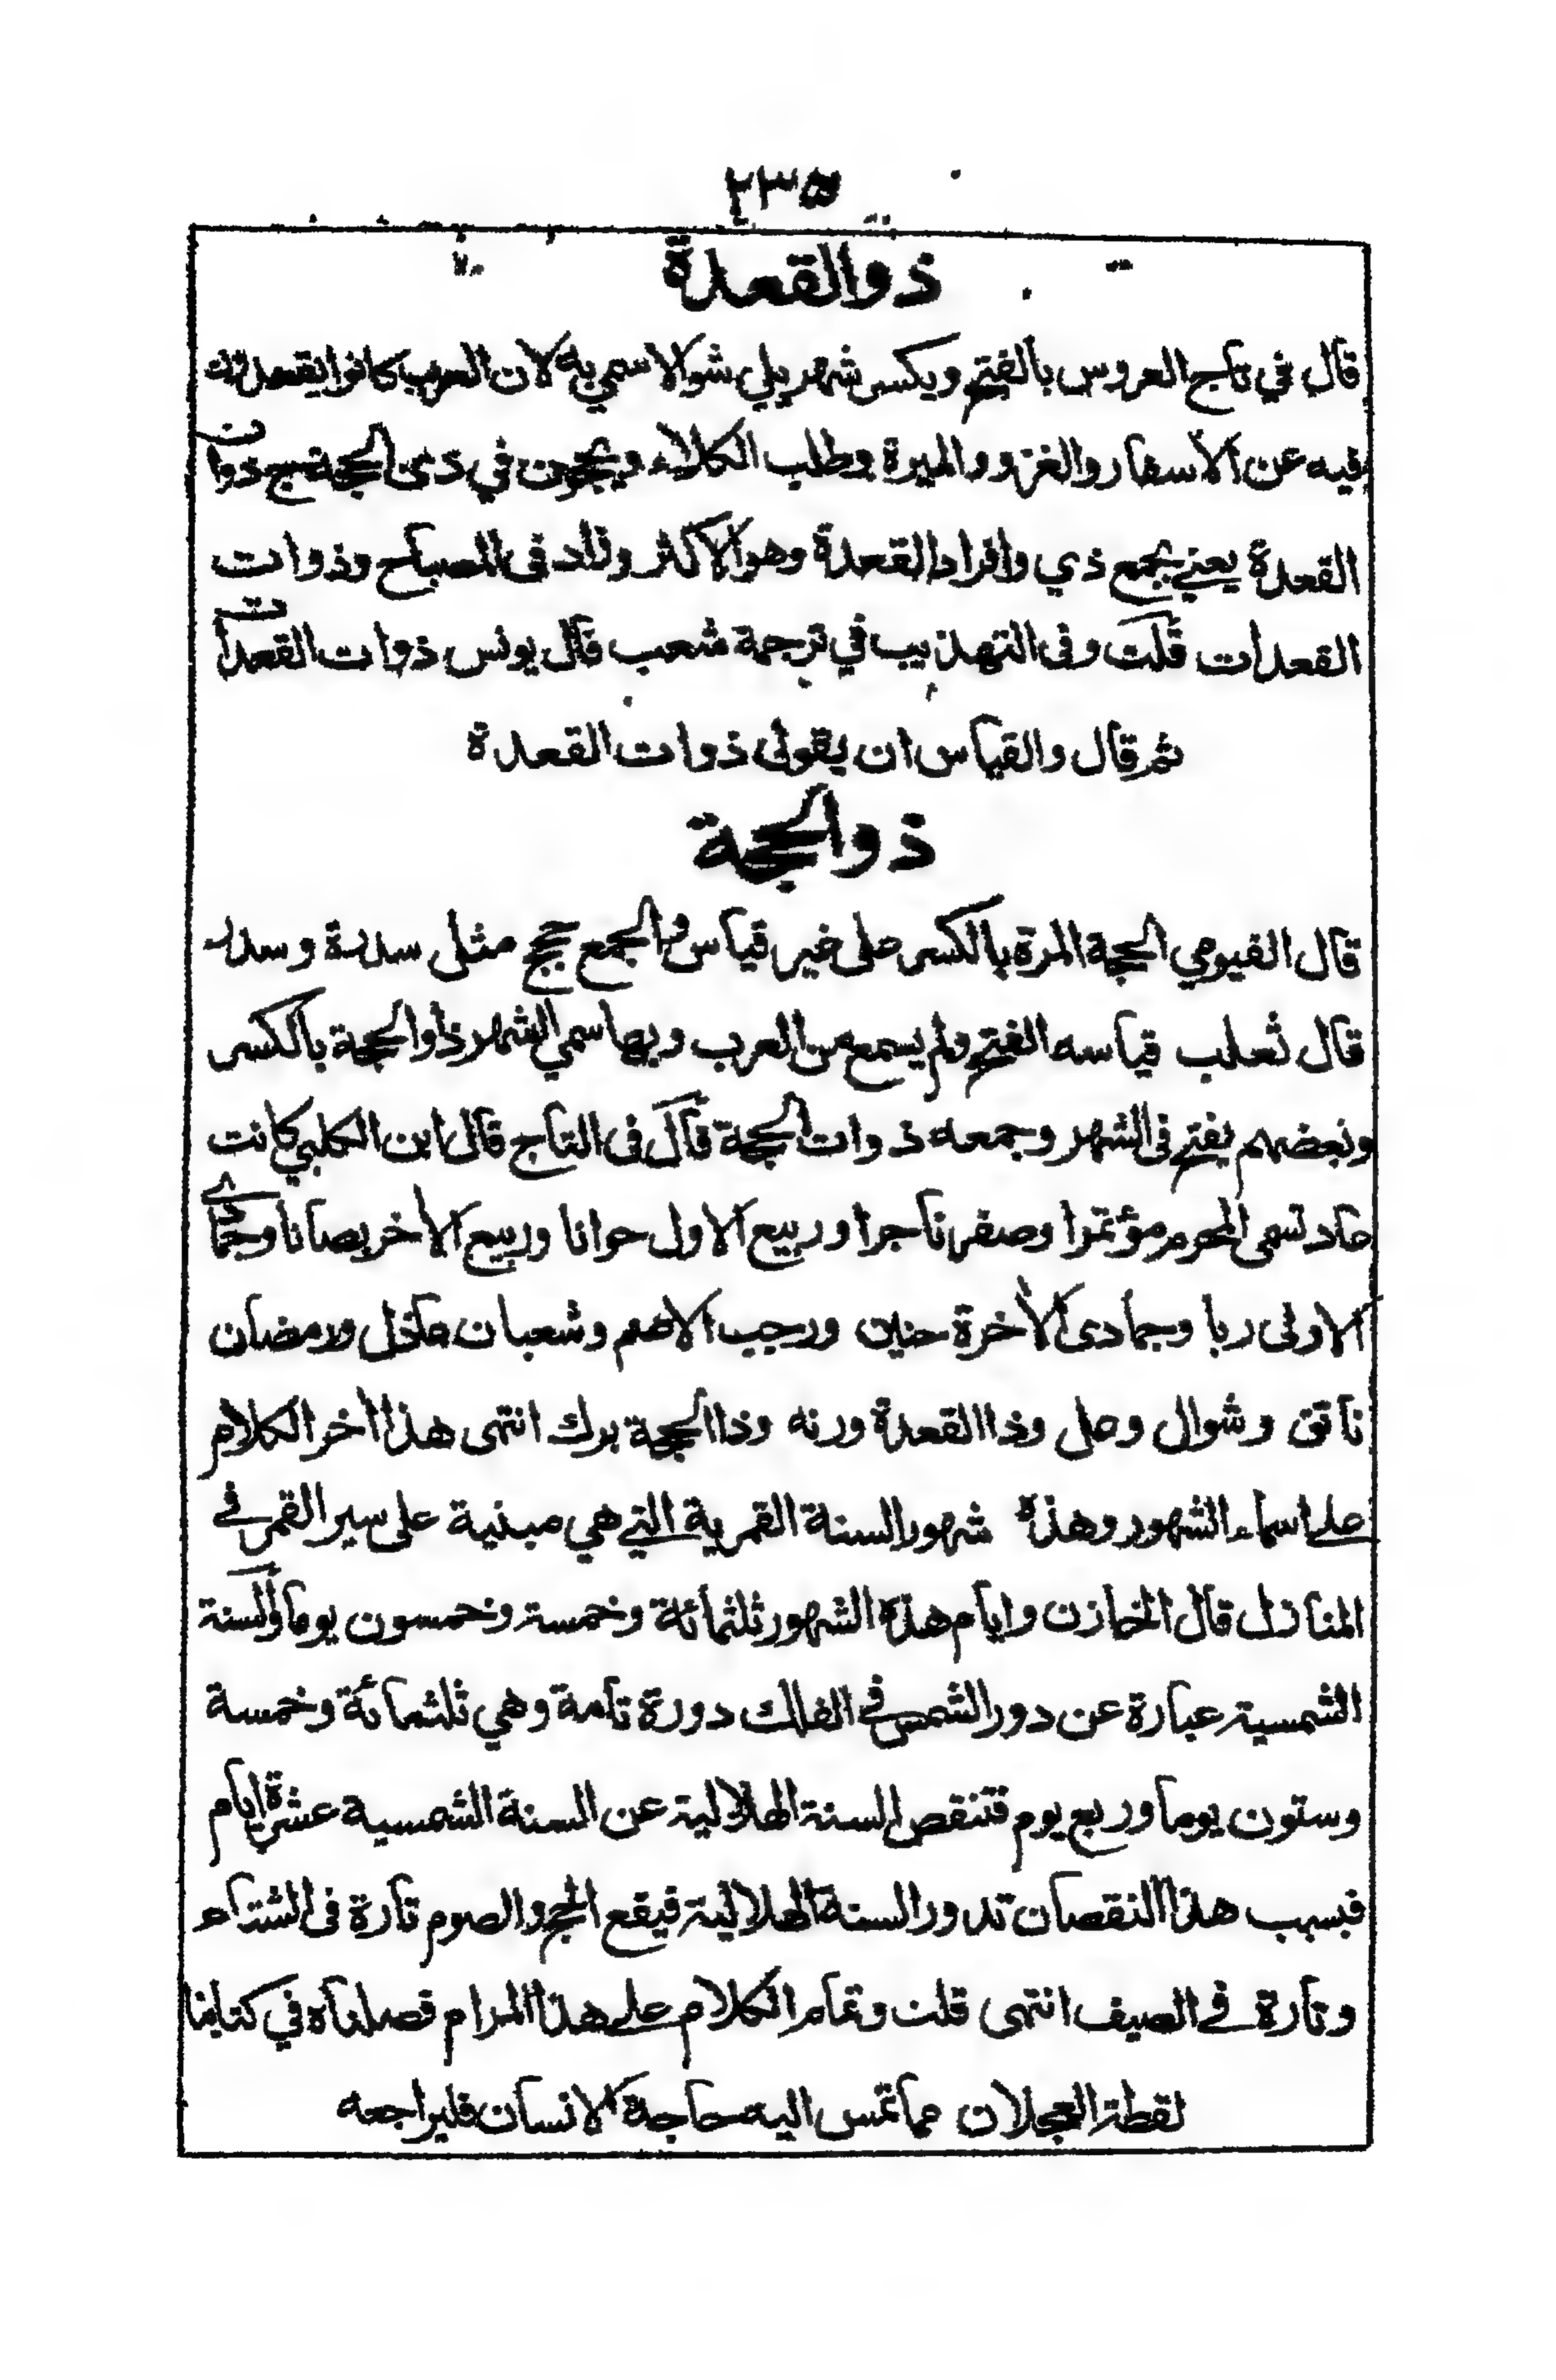 ٢٣٥
ذوالقعدة
قال في تاج العروس بالفتح ويكسر شهر يلي شوالا سمي به لان العرب كانوا يقعدون
فيه عن الأسفار والغزو والميرة وطلب الكلاء ويحجون في ذى الحجة ج ذوات
القعدة يعني بجمع ذي وافراد القعدة وهو الاكثر وزاد فى المصباح وذوات
القعدات قلت وفى التهذيب في ترجمة شعب قال يونس ذوات القعدات
ثم قال والقياس ان يقول ذوات القعدة
ذوالحجة
قال الفيومي الحجة المرة بالكسر على غير قياس والجمع حجج مثل سدرة وسدر
قال ثعلب قياسه الفتح ولم يسمع من العرب وبها سمي الشهر ذو الحجة بالكسر
وبعضهم يفتح فى الشهر وجمعه ذوات الحجة قال فى التاج قال ابن الكلبي كانت
عاد تسمى المحرم مؤتمرا وصفر ناجرا وربيع الاول خوانا وربيع الأخر بصانا وجمادى
الاولى ربا وجمادى الأخرة حنين ورجب الاصم وشعبان عاذل ورمضان
ناتق وشوال وعل وذا القعدة ورنه وذا الحجة برك انتهى هذا أخر الكلام
على اسماء الشهور وهذه شهور السنة القمرية التي هي مبنية على سير القمر في
المنازل قال الخازن وايام هذه الشهور ثلثمائة وخمسة وخمسون يوما والسنة
الشمسية عبارة عن دور الشمس في الفلك دورة تامة وهي ثلثمائة وخمسة
وستون يوما وربع يوم فتنقص السنة الهلالية عن السنة الشمسية عشرة ايام
فبسبب هذا النقصان تدور السنة الهلالية فيقع الحج والصوم تارة فى الشتاء
وتارة في الصيف انتهى قلت وتمام الكلام على هذا المرام فصلناه في كتابنا
لقطة العجلان مما تمس اليه حاجة الانسان فليراجعه